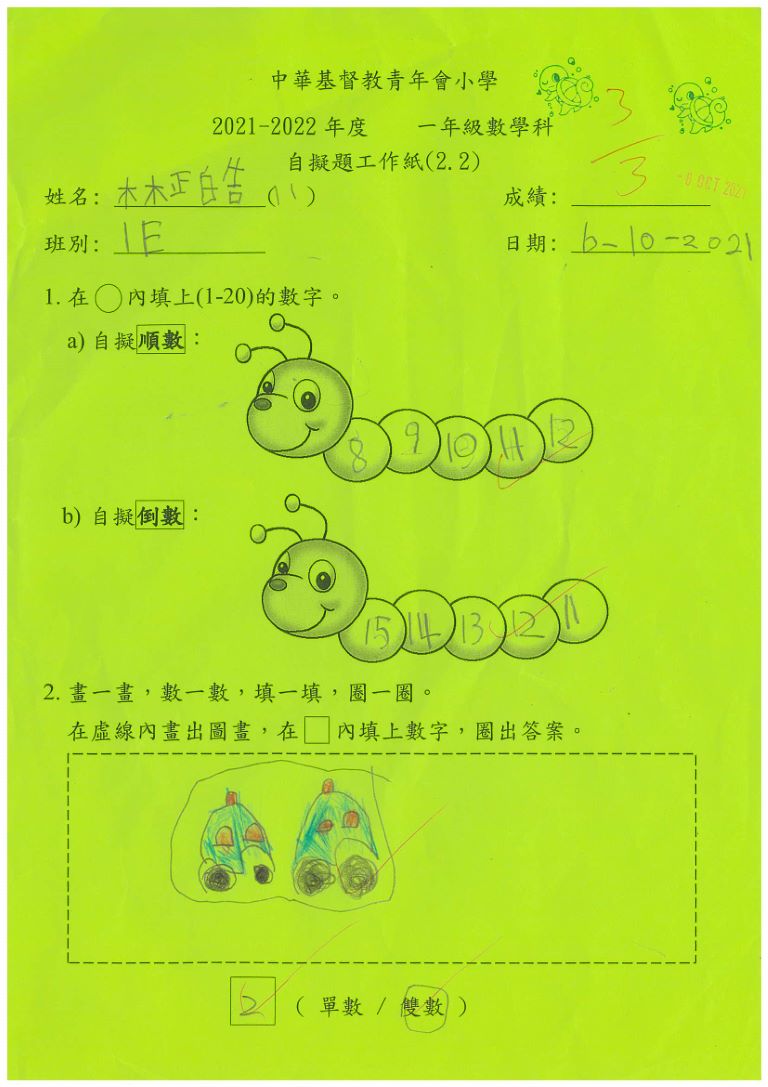 中華基督教青年會小學
2021-2022 年度 一年級數學科
3/3
自擬題工作紙(2.2)
-8 OCT 2021
姓名: 林正皓 (18) 成績:
班別: 1E 日期: 6-10-2021
1. 在○內填上(1-20)的數字。
a) 自擬順數：
8 9 10 11 12
b) 自擬倒數：
15 14 13 12 11
2. 畫一畫，數一數，填一填，圈一圈。
在虛線內畫出圖畫，在□內填上數字，圈出答案。
2 ( 單數 / 雙數 )